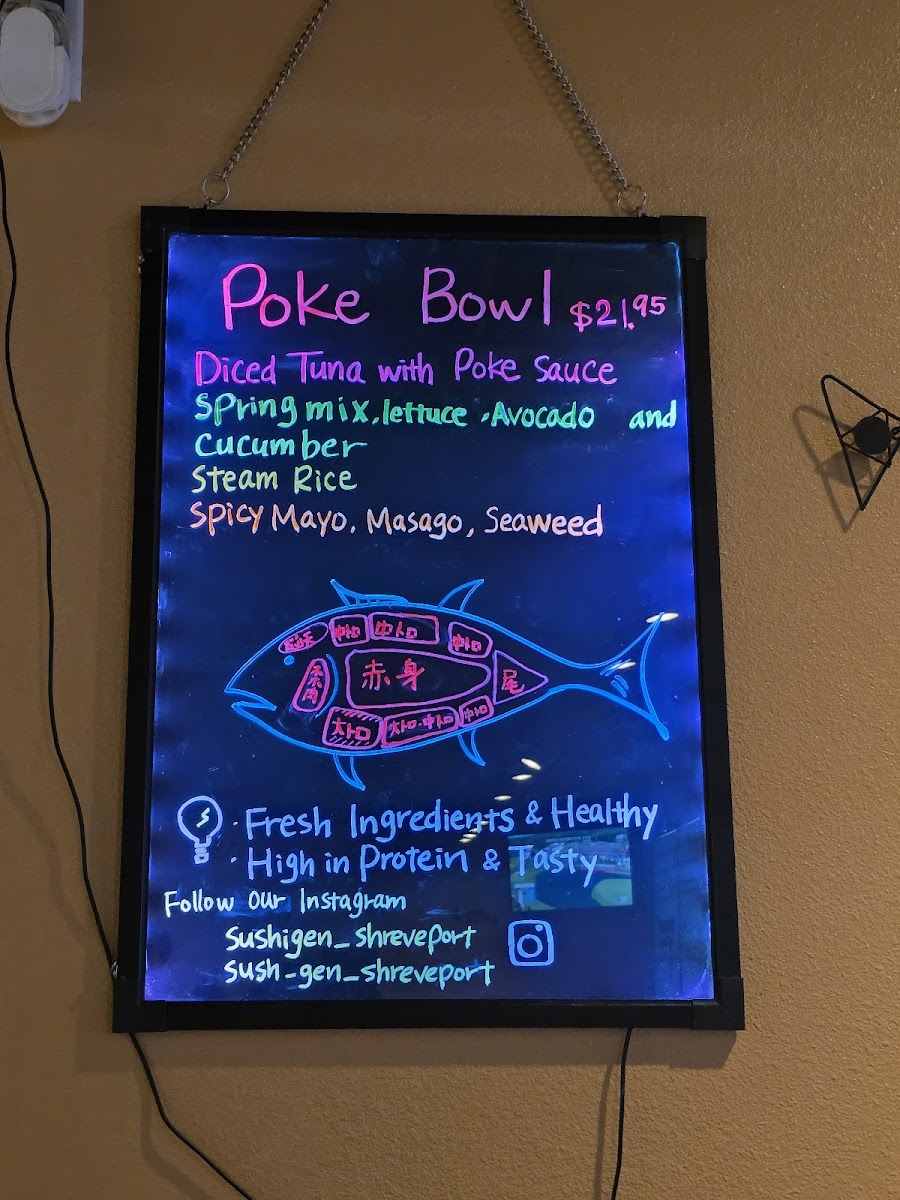 Poke Bowl $21.95
Diced Tuna with Poke Sauce
Spring mix, lettuce, Avocado and
Cucumber
Steam Rice
Spicy Mayo, Masago, Seaweed
中トロ 中トロ 中トロ
赤身
尾
大トロ 大トロ・中トロ 中トロ
· Fresh Ingredients & Healthy
· High in Protein & Tasty
Follow Our Instagram
sushigen_shreveport
sush-gen_shreveport